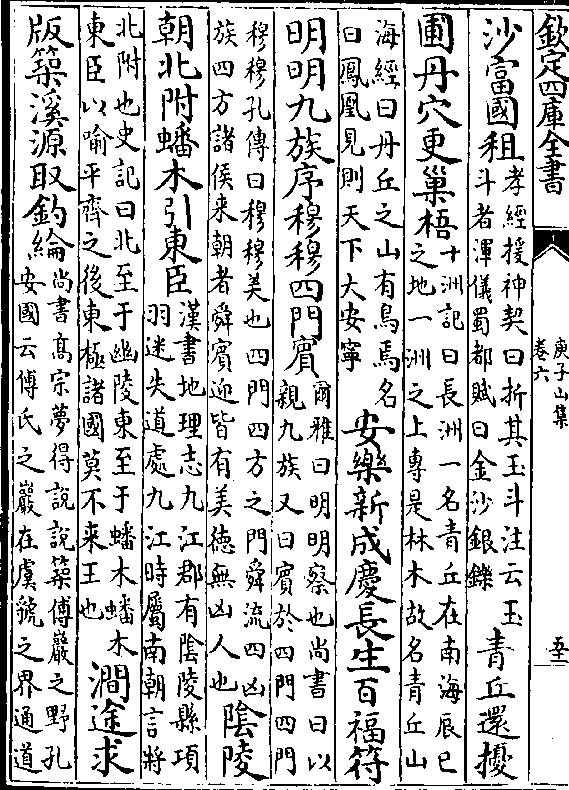 欽定四庫全書
庾子山集
卷六
沙富國租
孝經援神契曰折其玉斗注云玉
斗者渾儀蜀都賦曰金沙銀鑠
青丘還擾
圃丹穴更巢梧
十洲記曰長洲一名青丘在南海辰巳
之地一洲之上專是林木故名青丘山
海經曰丹丘之山有鳥焉名
曰鳳凰見則天下大安寧
安樂新成慶長生百福符
明明九族序穆穆四門賓
爾雅曰明明察也尚書曰以
親九族又曰賓於四門四門
穆穆孔傳曰穆穆美也四門四方之門舜流四凶
族四方諸侯来朝者舜賓迎皆有美德無凶人也
陰陵
朝北附蟠木引東臣
漢書地理志九江郡有陰陵縣項
羽迷失道處九江時屬南朝言將
北附也史記曰北至于幽陵東至于蟠木蟠木
東臣以喻平齊之後東極諸國莫不来王也
澗途求
版築溪源取釣綸
尚書高宗夢得說說築傅巖之野孔
安國云傅氏之巖在虞虢之界通道